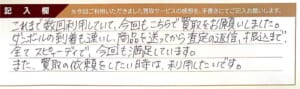 記入欄 ※今回ご利用いただきました買取サービスの感想を、手書きにてご記入お願いします。
これまで数回利用していて、今回もこちらで買取をお願いしました。
ダンボールの到着も速いし、商品を送ってから査定の返信、振込まで、
全てスピーディで、今回も満足しています。
また、買取の依頼をしたい時は、利用したいです。